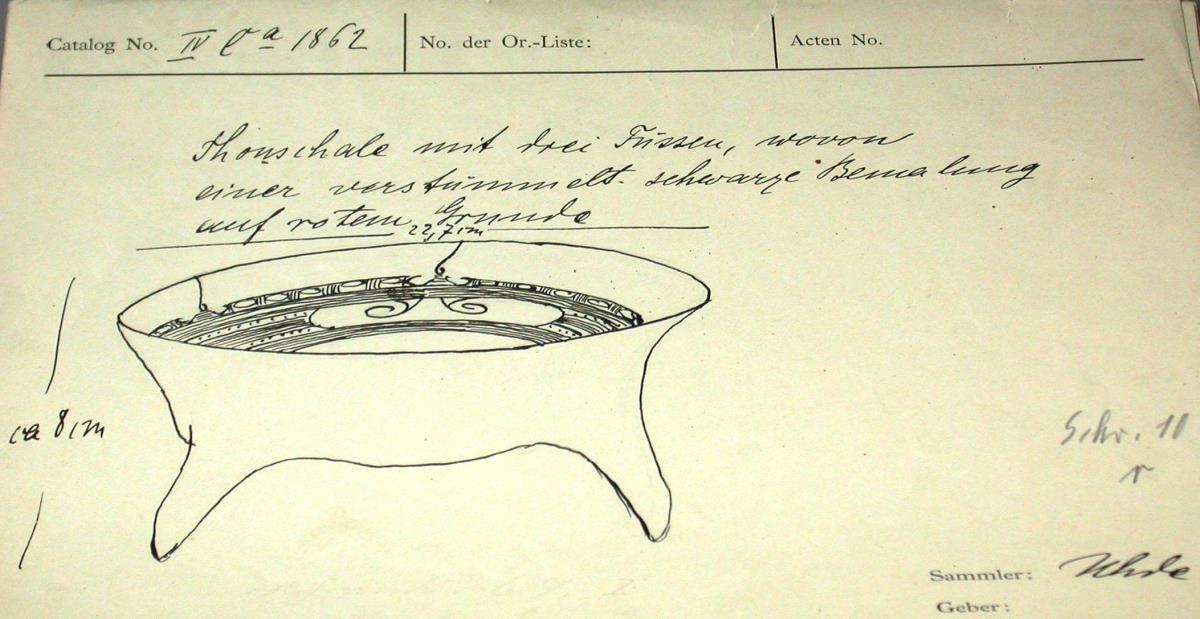 Catalog No. IV Ca 1862
No. der Or.-Liste:
Acten No.
Thonschale mit drei Füssen, wovon
einer verstümmelt. schwarze Bemalung
auf rotem Grunde
22,7 cm
ca 8 cm
Schr. 10
r
Sammler: Uhde
Geber: